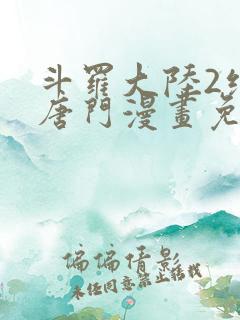 斗羅大陸2
唐門漫畫免
偏偏倩影
未经同意禁止转载